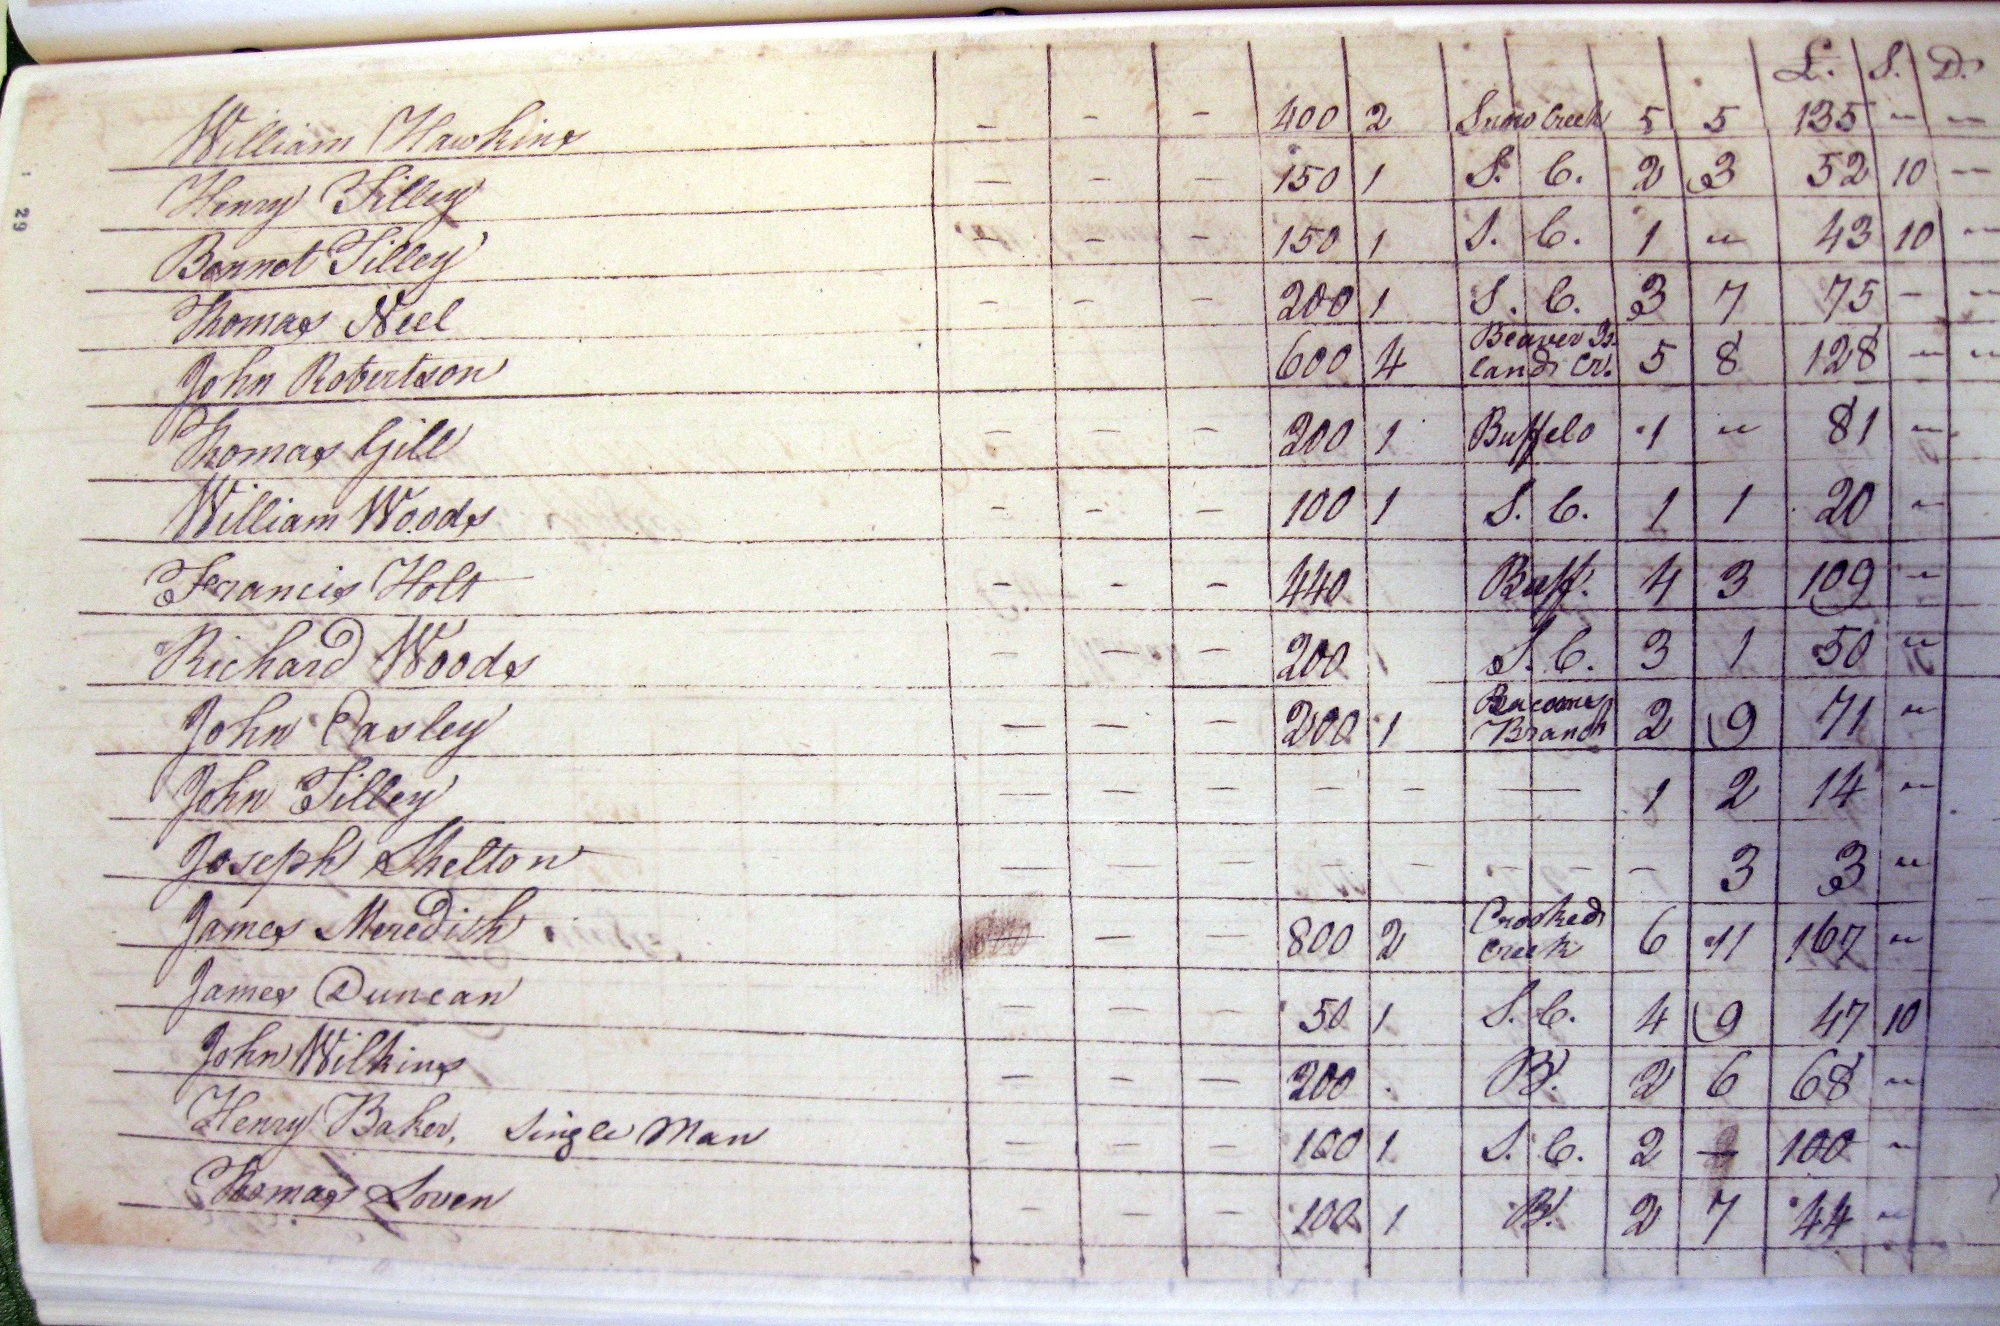 £. S. D.
William Hawkins - - - 400 2 Snow Creek 5 5 135 " "
Henry Tilley - - - 150 1 S. C. 2 3 52 10 "
Bennot Tilley - - - 150 1 S. C. 1 " 43 10 "
Thomas Neel - - - 200 1 S. C. 3 7 75 - "
John Robertson 600 4 Beaver Is-
land Cr. 5 8 128 " "
Thomas Gill - - - 200 1 Buffelo 1 " 81 "
William Woods - - - 100 1 S. C. 1 1 20 "
Francis Holt - - - 440 Buff. 4 3 109 "
Richard Woods - - - 200 S. C. 3 1 50 "
John Easley - - - 200 1 Branch 2 9 71 "
John Tilley - - - - - - 1 2 14 "
Joseph Shelton - - - - - - - - 3 3 "
James Meredith - - - 800 2 Crooked
Creek 6 11 167 "
James Duncan - - - 50 1 S. C. 4 9 47 10
John Wilkins - - - 200 B. 2 6 68 "
Henry Baker, Single Man - - - 100 1 S. C. 2 - 100 "
Thomas Loven - - - 100 1 B. 2 7 44 "
1 29